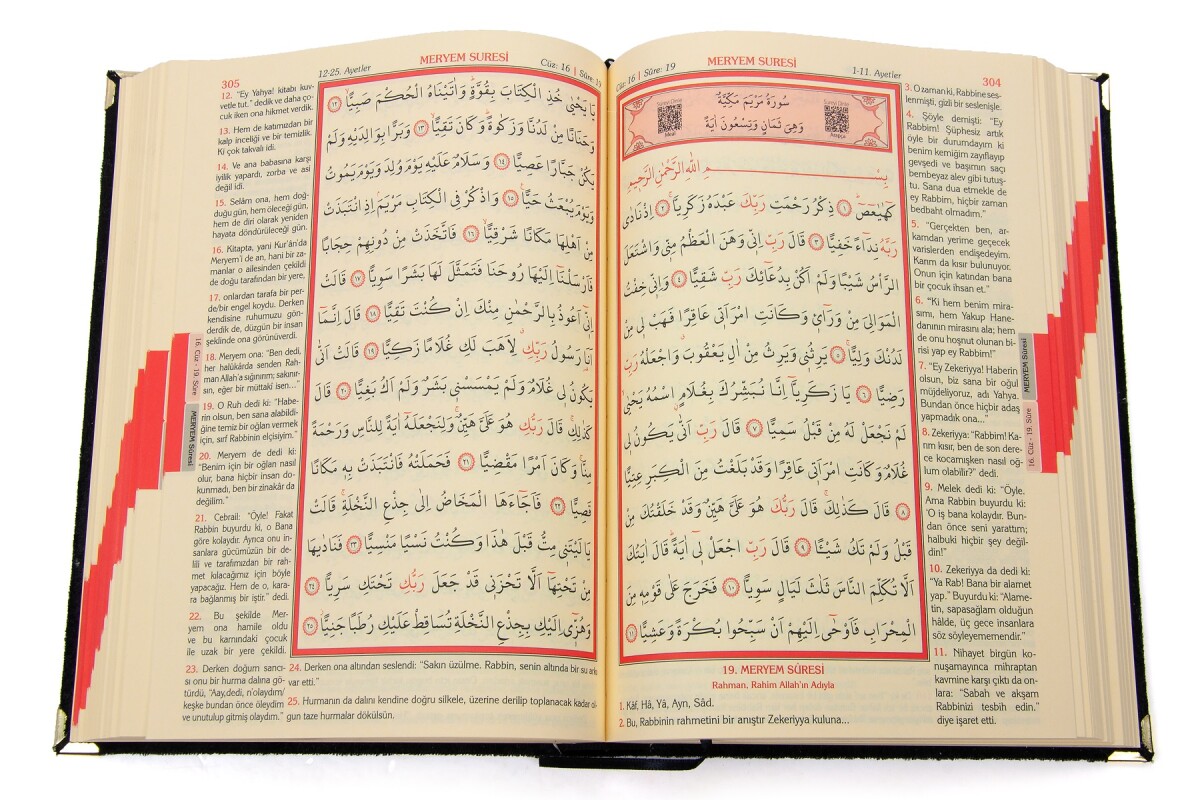 MERYEM SURESİ
Cüz: 16 | Sûre: 19
1-11. Ayetler
304
سُورَةُ مَرْيَمَ مَكِّيَّةٌ
وَهِيَ ثَمَانٍ وَتِسْعُونَ اٰيَةً
بِسْــــــــمِ اللّٰهِ الرَّحْمٰنِ الرَّحٖيمِ
كٓهٰيٰعٓصٓ ﴿١﴾ ذِكْرُ رَحْمَتِ رَبِّكَ عَبْدَهُ زَكَرِيَّا ﴿٢﴾ اِذْ نَادٰى
رَبَّهُ نِدَٓاءً خَفِيًّا ﴿٣﴾ قَالَ رَبِّ اِنّٖي وَهَنَ الْعَظْمُ مِنّٖي وَاشْتَعَلَ
الرَّاْسُ شَيْبًا وَلَمْ اَكُنْ بِدُعَٓائِكَ رَبِّ شَقِيًّا ﴿٤﴾ وَاِنّٖي خِفْتُ
الْمَوَالِيَ مِنْ وَرَٓائٖي وَكَانَتِ امْرَاَتٖي عَاقِرًا فَهَبْ لٖي مِنْ
لَدُنْكَ وَلِيًّا ﴿٥﴾ يَرِثُنٖي وَيَرِثُ مِنْ اٰلِ يَعْقُوبَ وَاجْعَلْهُ رَبِّ
رَضِيًّا ﴿٦﴾ يَا زَكَرِيَّٓا اِنَّا نُبَشِّرُكَ بِغُلَامٍ اسْمُهُ يَحْيٰى
لَمْ نَجْعَلْ لَهُ مِنْ قَبْلُ سَمِيًّا ﴿٧﴾ قَالَ رَبِّ اَنّٰى يَكُونُ لٖي
غُلَامٌ وَكَانَتِ امْرَاَتٖي عَاقِرًا وَقَدْ بَلَغْتُ مِنَ الْكِبَرِ عِتِيًّا
﴿٨﴾ قَالَ كَذٰلِكَ قَالَ رَبُّكَ هُوَ عَلَيَّ هَيِّنٌ وَقَدْ خَلَقْتُكَ مِنْ
قَبْلُ وَلَمْ تَكُ شَيْـًٔا ﴿٩﴾ قَالَ رَبِّ اجْعَلْ لٖٓي اٰيَةً قَالَ اٰيَتُكَ
اَلَّا تُكَلِّمَ النَّاسَ ثَلٰثَ لَيَالٍ سَوِيًّا ﴿١٠﴾ فَخَرَجَ عَلٰى قَوْمِهٖ مِنَ
الْمِحْرَابِ فَاَوْحٰٓى اِلَيْهِمْ اَنْ سَبِّحُوا بُكْرَةً وَعَشِيًّا ﴿١١﴾
19. MERYEM SÛRESİ
Rahman, Rahim Allah'ın Adıyla
1. Kâf, Hâ, Yâ, Ayn, Sâd.
2. Bu, Rabbinin rahmetini bir anıştır Zekeriyya kuluna...
3. O zaman ki, Rabbine ses-
lenmişti, gizli bir seslenişle.
4. Şöyle demişti: "Ey
Rabbim! Şüphesiz artık
öyle bir durumdayım ki
benim kemiğim zayıflayıp
gevşedi ve başımın saçı
bembeyaz alev gibi tutuş-
tu. Sana dua etmekle de
ey Rabbim, hiçbir zaman
bedbaht olmadım."
5. "Gerçekten ben, ar-
kamdan yerime geçecek
varislerden endişedeyim.
Karım da kısır bulunuyor.
Onun için katından bana
bir çocuk ihsan et."
6. "Ki hem benim mira-
sımı, hem Yakup Hane-
danının mirasını ala; hem
de onu hoşnut olunan bi-
risi yap ey Rabbim!"
7. "Ey Zekeriyya! Haberin
olsun, biz sana bir oğul
müjdeliyoruz, adı Yahya.
Bundan önce hiçbir adaş
yapmadık ona..."
8. Zekeriyya: "Rabbim! Ka-
rım kısır, ben de son dere-
ce kocamışken nasıl oğ-
lum olabilir?" dedi.
9. Melek dedi ki: "Öyle.
Ama Rabbin buyurdu ki:
'O iş bana kolaydır. Bun-
dan önce seni yarattım;
halbuki hiçbir şey değil-
din!"
10. Zekeriyya da dedi ki:
"Ya Rab! Bana bir alamet
yap." Buyurdu ki: "Alame-
tin, sapasağlam olduğun
hâlde, üç gece insanlara
söz söyleyememendir."
11. Nihayet birgün ko-
nuşamayınca mihraptan
kavmine karşı çıktı da on-
lara: "Sabah ve akşam
Rabbinizi tesbih edin."
diye işaret etti.
MERYEM Sûresi
16. Cüz - 19. Sûre
305
12-25. Ayetler
MERYEM SURESİ
Cüz: 16 | Sûre: 19
يَا يَحْيٰى خُذِ الْكِتَابَ بِقُوَّةٍ وَاٰتَيْنَاهُ الْحُكْمَ صَبِيًّا ﴿١٢﴾
وَحَنَانًا مِنْ لَدُنَّا وَزَكٰوةً وَكَانَ تَقِيًّا ﴿١٣﴾ وَبَرًّا بِوَالِدَيْهِ وَلَمْ
يَكُنْ جَبَّارًا عَصِيًّا ﴿١٤﴾ وَسَلَامٌ عَلَيْهِ يَوْمَ وُلِدَ وَيَوْمَ يَمُوتُ
وَيَوْمَ يُبْعَثُ حَيًّا ﴿١٥﴾ وَاذْكُرْ فِي الْكِتَابِ مَرْيَمَ اِذِ انْتَبَذَتْ
مِنْ اَهْلِهَا مَكَانًا شَرْقِيًّا ﴿١٦﴾ فَاتَّخَذَتْ مِنْ دُونِهِمْ حِجَابًا
فَاَرْسَلْنَٓا اِلَيْهَا رُوحَنَا فَتَمَثَّلَ لَهَا بَشَرًا سَوِيًّا ﴿١٧﴾ قَالَتْ
اِنّٖٓي اَعُوذُ بِالرَّحْمٰنِ مِنْكَ اِنْ كُنْتَ تَقِيًّا ﴿١٨﴾ قَالَ اِنَّمَٓا
اَنَا رَسُولُ رَبِّكِ لِاَهَبَ لَكِ غُلَامًا زَكِيًّا ﴿١٩﴾ قَالَتْ اَنّٰى
يَكُونُ لٖي غُلَامٌ وَلَمْ يَمْسَسْنٖي بَشَرٌ وَلَمْ اَكُ بَغِيًّا ﴿٢٠﴾ قَالَ
كَذٰلِكِ قَالَ رَبُّكِ هُوَ عَلَيَّ هَيِّنٌ وَلِنَجْعَلَهُٓ اٰيَةً لِلنَّاسِ وَرَحْمَةً
مِنَّا وَكَانَ اَمْرًا مَقْضِيًّا ﴿٢١﴾ فَحَمَلَتْهُ فَانْتَبَذَتْ بِهٖ مَكَانًا
قَصِيًّا ﴿٢٢﴾ فَاَجَٓاءَهَا الْمَخَاضُ اِلٰى جِذْعِ النَّخْلَةِ قَالَتْ
يَا لَيْتَنٖي مِتُّ قَبْلَ هٰذَا وَكُنْتُ نَسْيًا مَنْسِيًّا ﴿٢٣﴾ فَنَادٰيهَا
مِنْ تَحْتِهَٓا اَلَّا تَحْزَنٖي قَدْ جَعَلَ رَبُّكِ تَحْتَكِ سَرِيًّا ﴿٢٤﴾
وَهُزّٖٓي اِلَيْكِ بِجِذْعِ النَّخْلَةِ تُسَاقِطْ عَلَيْكِ رُطَبًا جَنِيًّا ﴿٢٥﴾
12. "Ey Yahya! kitabı kuv-
vetle tut." dedik ve daha ço-
cuk iken ona hikmet verdik.
13. Hem de katımızdan bir
kalp inceliği ve bir temizlik.
Ki çok takvalı idi.
14. Ve ana babasına karşı
iyilik yapardı, zorba ve asi
değil idi.
15. Selâm ona, hem doğ-
duğu gün, hem öleceği gün,
hem de diri olarak yeniden
hayata döndürüleceği gün.
16. Kitapta, yani Kur'ân'da
Meryem'i de an, hani bir za-
manlar o ailesinden çekildi
de doğu tarafından bir yere,
17. onlardan tarafa bir per-
de/bir engel koydu. Derken
kendisine ruhumuzu gön-
derdik de, düzgün bir insan
şeklinde ona görünüverdi.
18. Meryem ona: "Ben dedi,
her halükârda senden Rah-
man Allah'a sığınırım; sakınır-
san, eğer bir müttakî isen..."
19. O Ruh dedi ki: "Habe-
rin olsun, ben sana alabildi-
ğine temiz bir oğlan vermek
için, sırf Rabbinin elçisiyim."
20. Meryem de dedi ki:
"Benim için bir oğlan nasıl
olur, bana hiçbir insan do-
kunmadı, ben bir zinakâr da
değilim."
21. Cebrail: "Öyle! Fakat
Rabbin buyurdu ki, o Bana
göre kolaydır. Ayrıca onu in-
sanlara gücümüzün bir de-
lili ve tarafımızdan bir rah-
met kılacağımız için böyle
yapacağız. Hem de o, kara-
ra bağlanmış bir iştir." dedi.
22. Bu şekilde Mer-
yem ona hamile oldu
ve bu karnındaki çocuk
ile uzak bir yere çekildi.
23. Derken doğum sancı-
sı onu bir hurma dalına gö-
türdü, "Aay,dedi, n'olaydım/
keşke bundan önce öleydim
ve unutulup gitmiş olaydım."
24. Derken ona altından seslendi: "Sakın üzülme. Rabbin, senin altında bir su arkı
var etti."
25. Hurmanın dalını kendine doğru silkele, üzerine derilip toplanacak kadar ol-
gun taze hurmalar dökülsün.
16. Cüz - 19. Sûre
MERYEM Sûresi